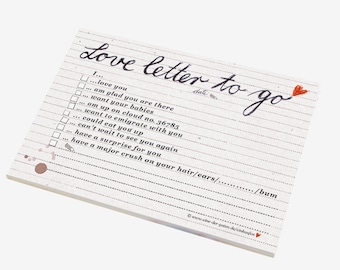 Love letter to go
I...
... love you
... am glad you are there
... want your babies
... am up on cloud no. 36785
... want to emigrate with you
... could eat you up
... can't wait to see you again
... have a surprise for you
... have a major crush on your hair/ears/............/bum